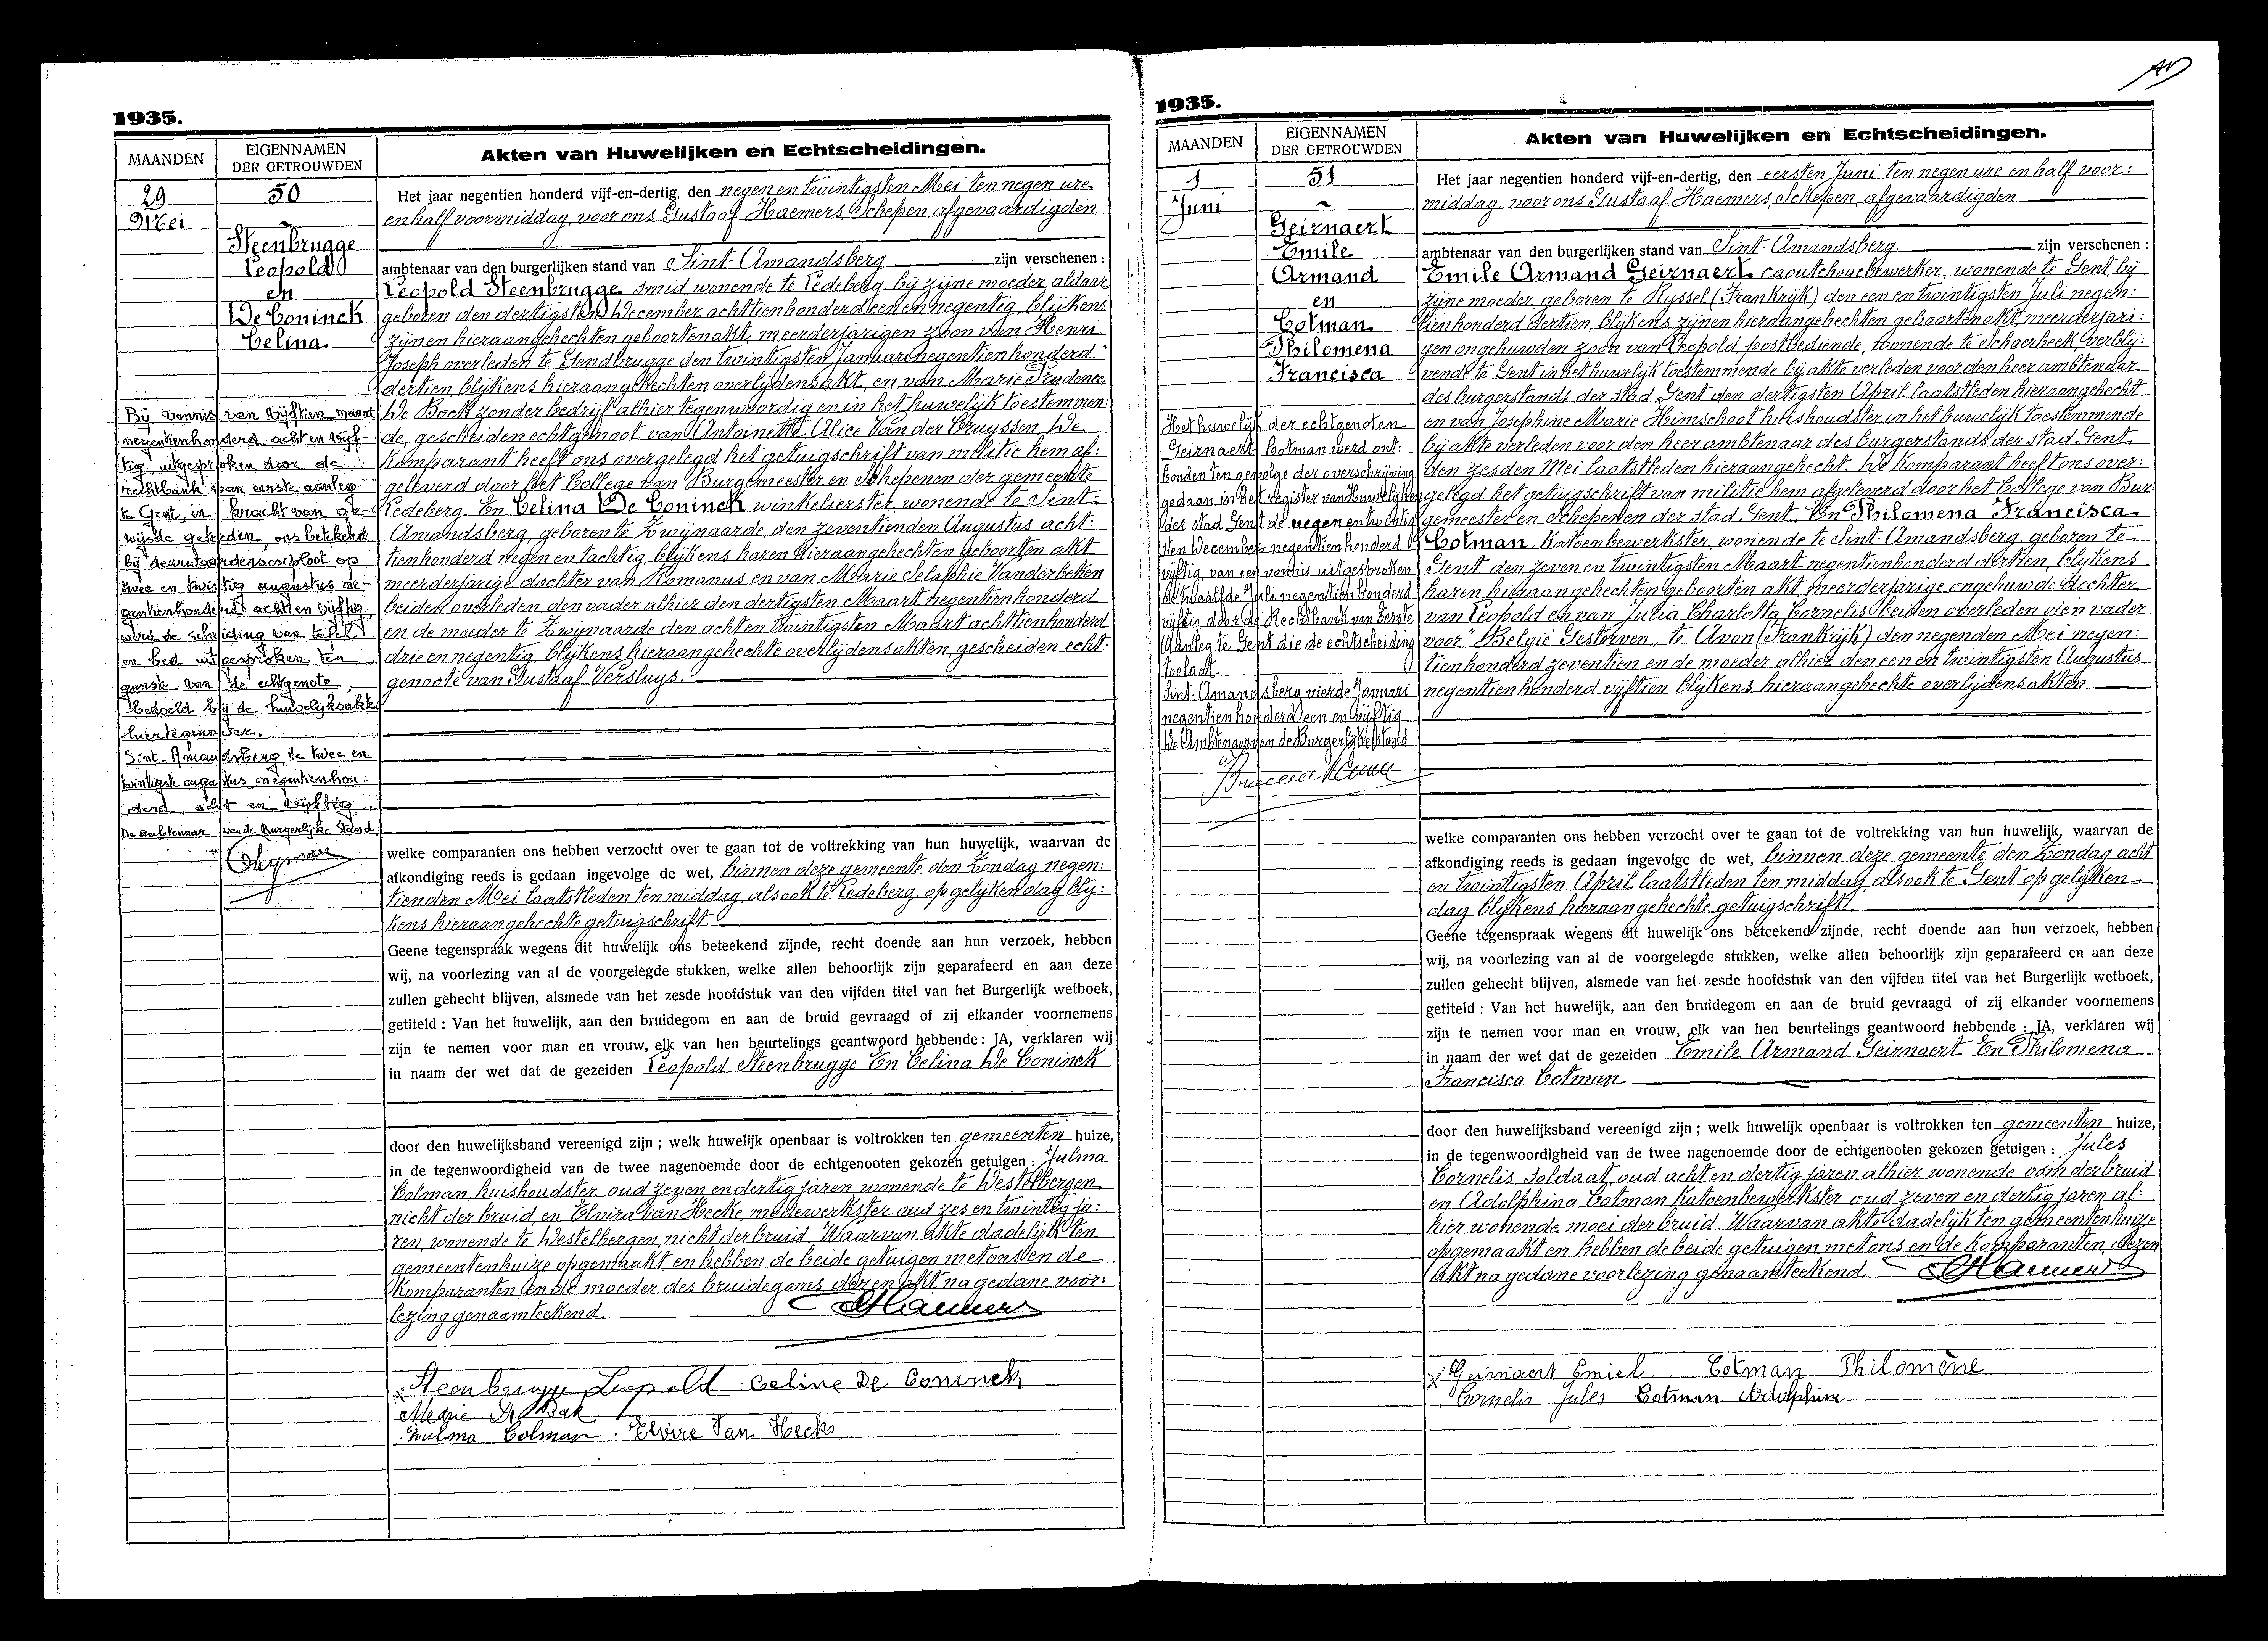 1935.
MAANDEN
EIGENNAMEN
DER GETROUWDEN
Akten van Huwelijken en Echtscheidingen.
29
Mei
50
Steenbrugge
Leopold
en
De Coninck
Celina
Bij vonnis van vijftien maart
negentienhonderd acht en vijf-
tig, uitgesproken door de
rechtbank van eerste aanleg
te Gent, in kracht van ge-
wijsde getreden, ons betekend
bij deurwaardersexploot op
twee en twintig augustus ne-
gentienhonderd acht en vijftig,
werd de scheiding van tafel
en bed uitgesproken ten
gunste van de echtgenote,
bedoeld bij de huwelijksakte
hiertegenover.
Sint-Amandsberg, de twee en
twintigste augustus negentienhon-
derd acht en vijftig.
De ambtenaar van de Burgerlijke Stand,
Het jaar negentien honderd vijf-en-dertig, den negen en twintigsten Mei ten negen ure
en half voormiddag, voor ons Gustaaf Haemers, Schepen, afgevaardigden
ambtenaar van den burgerlijken stand van Sint-Amandsberg zijn verschenen :
Leopold Steenbrugge smid, wonende te Ledeberg, bij zijne moeder aldaar
geboren den dertigsten December achttienhonderd een en negentig, blijkens
zijnen hieraangehechten geboortenakt, meerderjarigen zoon van Henri
Joseph overleden te Gendbrugge den twintigsten Januari negentienhonderd
dertien, blijkens hieraangehechten overlijdensakt, en van Marie Prudence
De Bock zonder bedrijf alhier tegenwoordig en in het huwelijk toestemmen:
de, gescheiden echtgenoot van Antoinetta Alice Van der Cruyssen. De
Komparant heeft ons overgelegd het getuigschrift van militie hem af:
geleverd door het College van Burgemeester en Schepenen der gemeente
Ledeberg. En Celina De Coninck winkelierster, wonende te Sint-
Amandsberg, geboren te Zwijnaarde, den zeventienden Augustus acht:
tienhonderd negen en tachtig, blijkens haren hieraangehechten geboorten akt
meerderjarige dochter van Romanus en van Marie Seraphie Vanderbeken
beiden overleden, den vader alhier den dertigsten Maart negentienhonderd
en de moeder te Zwijnaarde den acht en twintigsten Maart achttienhonderd
drie en negentig, blijkens hieraangehechte overlijdensakten, gescheiden echt:
genoote van Gustaaf Versluys.
welke comparanten ons hebben verzocht over te gaan tot de voltrekking van hun huwelijk, waarvan de
afkondiging reeds is gedaan ingevolge de wet, binnen deze gemeente den Zondag negen:
tienden Mei laatstleden ten middag, alsook te Ledeberg op gelijken dag blij:
kens hieraangehechte getuigschrift.
Geene tegenspraak wegens dit huwelijk ons beteekend zijnde, recht doende aan hun verzoek, hebben
wij, na voorlezing van al de voorgelegde stukken, welke allen behoorlijk zijn geparafeerd en aan deze
zullen gehecht blijven, alsmede van het zesde hoofdstuk van den vijfden titel van het Burgerlijk wetboek,
getiteld : Van het huwelijk, aan den bruidegom en aan de bruid gevraagd of zij elkander voornemens
zijn te nemen voor man en vrouw, elk van hen beurtelings geantwoord hebbende : JA, verklaren wij
in naam der wet dat de gezeiden Leopold Steenbrugge En Celina De Coninck
door den huwelijksband vereenigd zijn ; welk huwelijk openbaar is voltrokken ten gemeenten huize,
in de tegenwoordigheid van de twee nagenoemde door de echtgenooten gekozen getuigen : Julma
Colman, huishoudster oud zeven en dertig jaren, wonende te Westelbergen
nicht der bruid, en Elvira Van Hecke, medewerkster oud zes en twintig ja:
ren, wonende te Westelbergen, nicht der bruid. Waarvan akte dadelijk ten
gemeentenhuize opgemaakt, en hebben de beide getuigen met ons en de
Komparanten en de moeder des bruidegoms dezen akt na gedane voor:
lezing genaamteekend. Haemers
Steenbrugge Leopold Celine De Coninck
Marie De Bock
Zulma Colman. Elvire Van Hecke
1935.
MAANDEN
EIGENNAMEN
DER GETROUWDEN
Akten van Huwelijken en Echtscheidingen.
1
Juni
51
Geirnaert
Emile
Armand
en
Cotman
Philomena
Francisca
Het huwelijk der echtgenoten
Geirnaert Cotman werd ont:
bonden ten gevolge der overschrijving
gedaan in het register van Huwelijken
der stad Gent de negen en twintig
sten December negentienhonderd
vijftig, van een vonnis uitgesproken
de twaalfde Juli negentienhonderd
vijftig door de Rechtbank van Eerste
Aanleg te Gent die de echtscheiding
toelaat.
Sint-Amandsberg vierde Januari
negentienhonderd een en vijftig
De Ambtenaar van de Burgerlijke Stand
Het jaar negentien honderd vijf-en-dertig, den eersten Juni ten negen ure en half voor:
middag, voor ons Gustaaf Haemers, Schepen, afgevaardigden
ambtenaar van den burgerlijken stand van Sint-Amandsberg zijn verschenen :
Emile Armand Geirnaert caoutchoucbewerker, wonende te Gent bij
zijne moeder, geboren te Ryssel (Frankrijk) den een en twintigsten Juli negen:
tienhonderd dertien, blijkens zijnen hieraangehechten geboortenakt, meerderjari:
gen ongehuwden zoon van Leopold, postbediende, wonende te Schaerbeek, verblij:
vende te Gent in het huwelijk toestemmende bij akte verleden voor den heer ambtenaar
des burgerstands der stad Gent den dertigsten April laatstleden hieraangehecht
en van Josephine Marie Himschoot huishoudster in het huwelijk toestemmende
bij akte verleden voor den heer ambtenaar des burgerstands der stad Gent
den zesden Mei laatstleden hieraangehecht. De Komparant heeft ons over:
gelegd het getuigschrift van militie hem afgeleverd door het College van Bur:
gemeester en Schepenen der stad Gent. En Philomena Francisca
Cotman. Katoenbewerkster, wonende te Sint-Amandsberg, geboren te
Gent den zeven en twintigsten Maart negentienhonderd dertien, blijkens
haren hieraangehechten geboorten akt, meerderjarige ongehuwde dochter
van Leopold en van Julia Charletta Cornelis, beiden overleden, den vader
voor "België Gestorven" te Avon (Frankrijk) den negenden Mei negen:
tienhonderd zeventien en de moeder alhier den een en twintigsten Augustus
negentienhonderd vijftien blijkens hieraangehechte overlijdensakten
welke comparanten ons hebben verzocht over te gaan tot de voltrekking van hun huwelijk, waarvan de
afkondiging reeds is gedaan ingevolge de wet, binnen deze gemeente den Zondag acht
en twintigsten April laatstleden ten middag, alsook te Gent op gelijken
dag blijkens hieraangehechte getuigschrift.
Geene tegenspraak wegens dit huwelijk ons beteekend zijnde, recht doende aan hun verzoek, hebben
wij, na voorlezing van al de voorgelegde stukken, welke allen behoorlijk zijn geparafeerd en aan deze
zullen gehecht blijven, alsmede van het zesde hoofdstuk van den vijfden titel van het Burgerlijk wetboek,
getiteld : Van het huwelijk, aan den bruidegom en aan de bruid gevraagd of zij elkander voornemens
zijn te nemen voor man en vrouw, elk van hen beurtelings geantwoord hebbende : JA, verklaren wij
in naam der wet dat de gezeiden Emile Armand Geirnaert En Philomena
Francisca Cotman
door den huwelijksband vereenigd zijn ; welk huwelijk openbaar is voltrokken ten gemeenten huize,
in de tegenwoordigheid van de twee nagenoemde door de echtgenooten gekozen getuigen : Jules
Cornelis, soldaat, oud acht en dertig jaren alhier wonende oom der bruid
en Adolphina Cotman Katoenbewerkster oud zeven en dertig jaren al:
hier wonende moei der bruid. Waarvan akte dadelijk ten gemeentenhuize
opgemaakt en hebben de beide getuigen met ons en de Komparanten, dezen
akt na gedane voorlezing genaamteekend. Haemers
Geirnaert Emiel Cotman Philomène
Cornelis Jules Cotman Adolphine